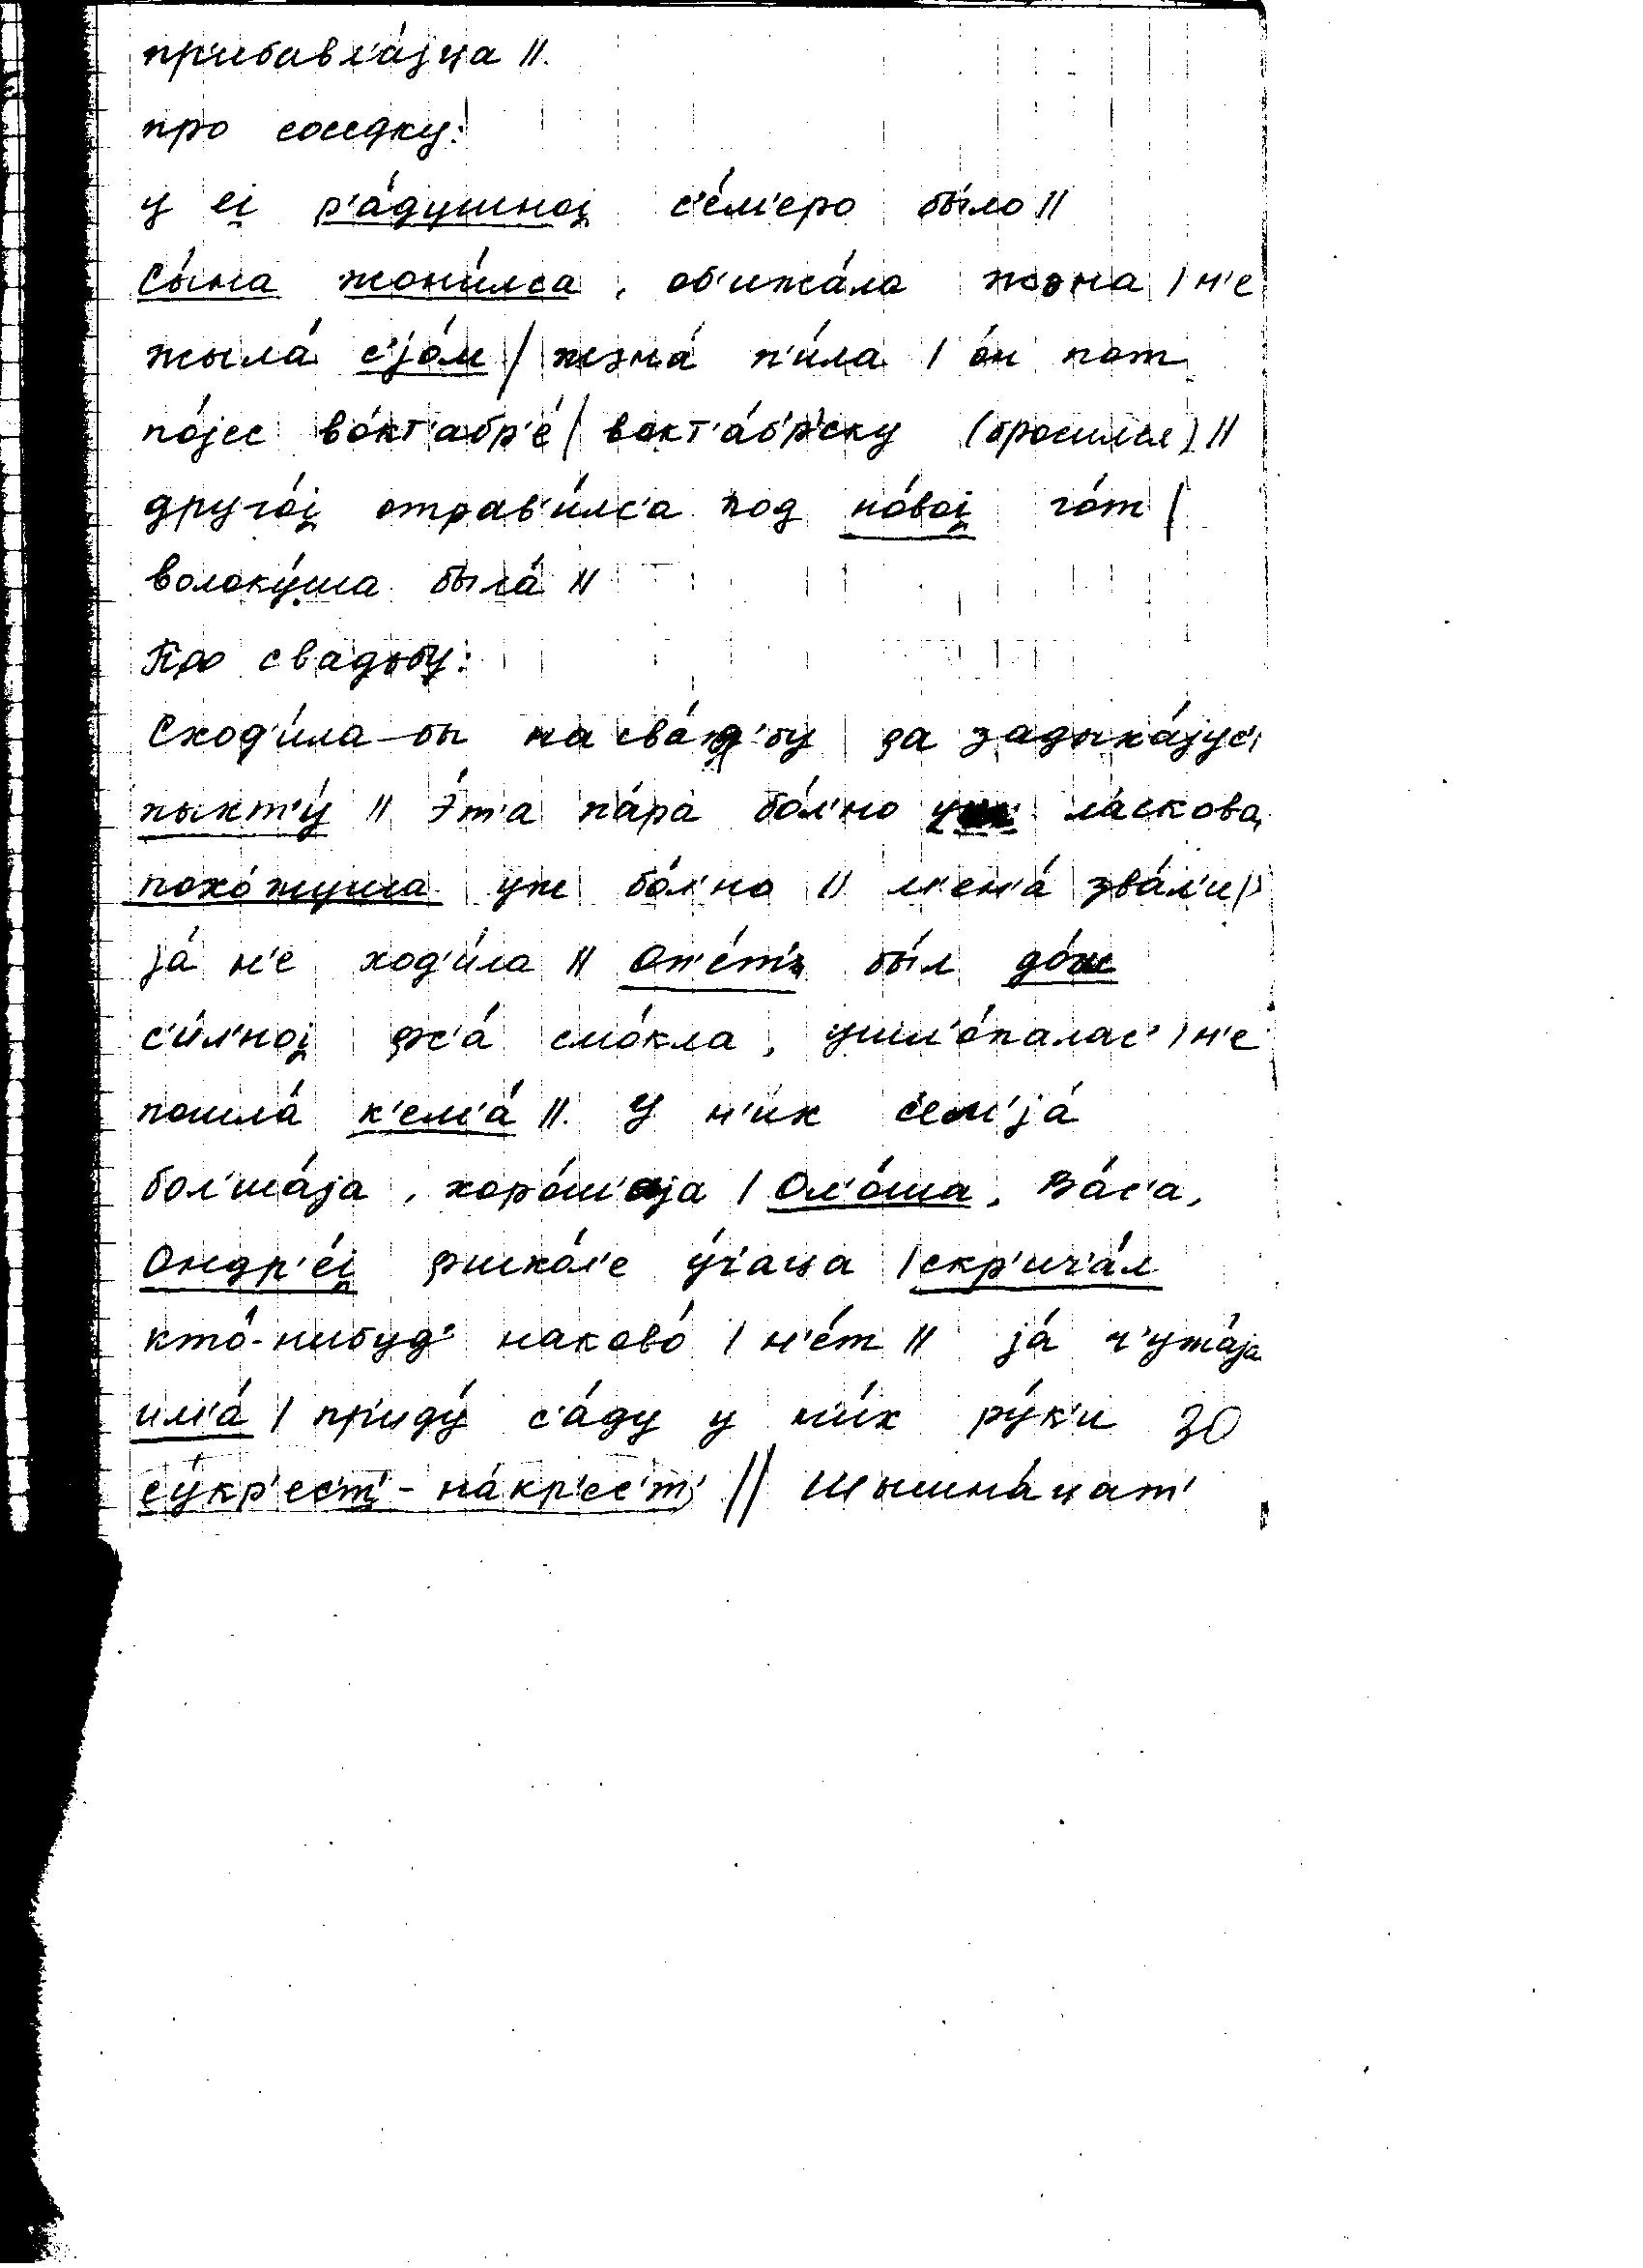 пр'ибавл'а́јца //.
про соседку:
у еі̯ р'а́душноі̯ с'е́м'еро бы́ло //
Сы́на жони́лса, об'ижа́ла жэна / н'е
жыла́ с'јо́м / жэна́ п'и́ла / о́н пот
по́јес во́кт'абр'е́ / вокт'а́бр'ску (бросился) //
друго́і̯ отрав'и́лс'а под но́воі̯ го́т /
волоку́ша была́ //
Про свадьбу:
Сход'и́ла-бы на сва́д'бу да задыха́јус'
пыхт'у́ // э́т'а па́ра бо́л'но уж ла́скова,
похо́жуша уж бо́л'но // м'ен'а́ зва́л'и /
ја́ н'е ход'и́ла // Оп'е́т' бы́л до́ж
с'и́л'ноі̯ фс'а́ смо́кла, ушл'о́палас' / н'е
пошла́ к'ем'а́ //. У н'и́х с'ем'ја́
бол'ша́ја, хоро́шаја / Ол'о́ша, Ва́с'а,
Ондр'е́і̯ фшко́л'е у́чаца / скр'ич'а́л
кто́-нибуд' наково́ / н'е́т // ја́ ч'ужа́ја
им'а́ / пр'иду́ с'а́ду у н'и́х ру́к'и 30
су́кр'ес'т'-на́кр'ес'т' // Шышна́цат'